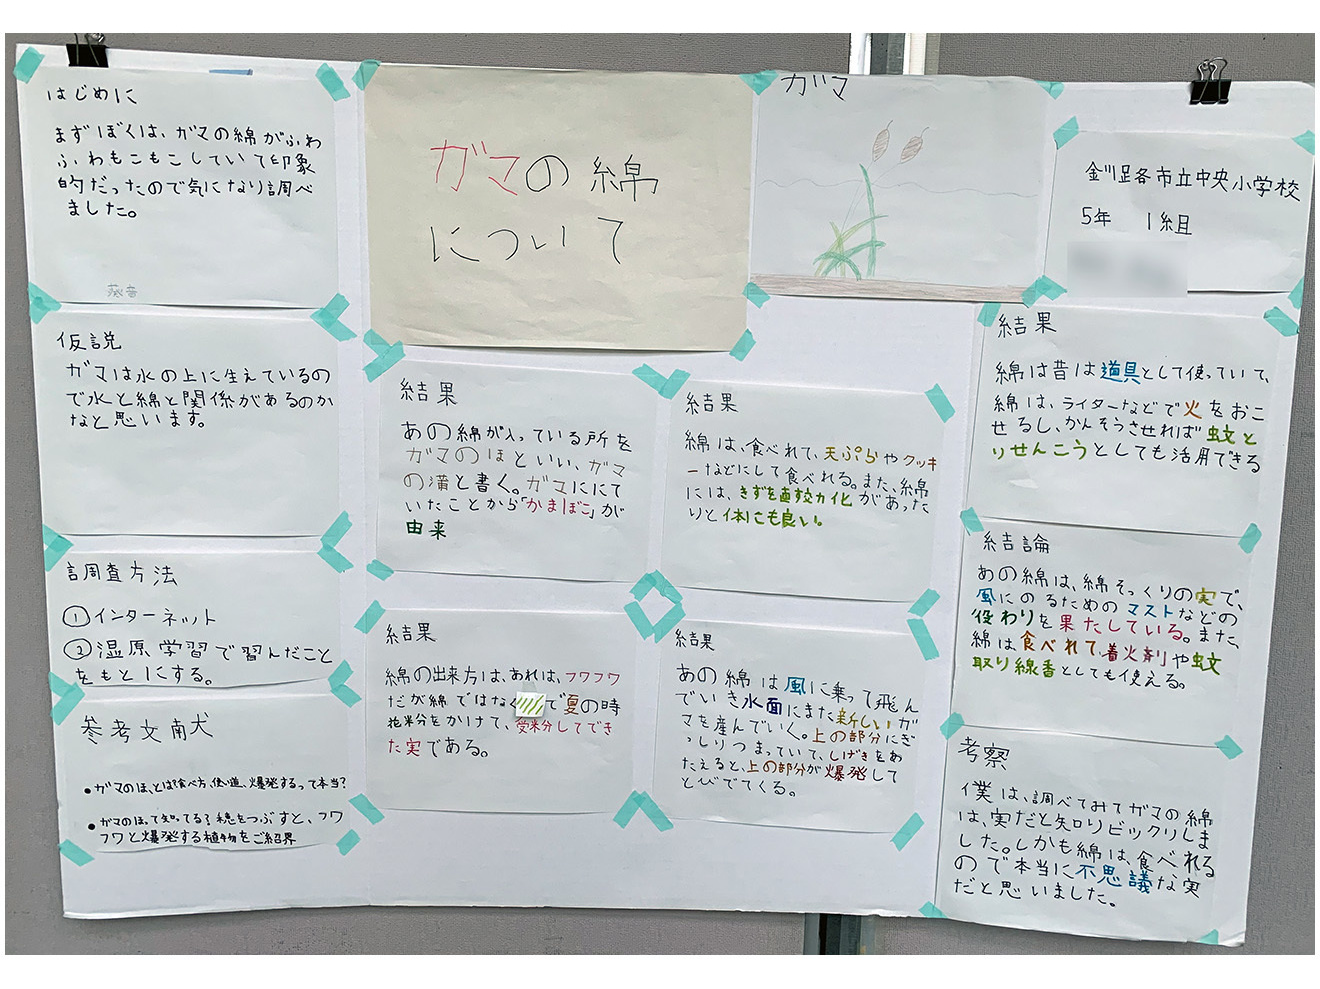 はじめに
まずぼくは、ガマの綿がふわ
ふわもこもこしていて印象
的だったので気になり調べ
ました。
葵音
仮説
ガマは水の上に生えているの
で水と綿と関係があるのか
なと思います。
調査方法
①インターネット
②湿原学習で習んだこと
をもとにする。
参考文献
●ガマのほ、とは食べ方、使い道、爆発するって本当?
●ガマのほって知ってる?穂をつぶすと、フワ
フワと爆発する植物をご紹界
ガマの綿
について
ガマ
釧路市立中央小学校
5年 1組
結果
あの綿が入っている所を
ガマのほといい、ガマ
の浦と書く。ガマににて
いたことから「かまぼこ」が
由来
結果
綿は、食べれて、天ぷらやクッキ
ーなどにして食べれる。また、綿
には、きずを直す交力化があった
りと体にも良い。
結果
綿の出来方は、あれは、フワフワ
だが綿ではなく で夏の時
花粉をかけて、受粉してでき
た実である。
結果
あの綿は風に乗って飛ん
でいき水面にまた新しいガ
マを産んでいく。上の部分にぎ
っしりつまっていて、しげきをあ
たえると、上の部分が爆発して
とびでてくる。
結果
綿は昔は道具として使っていて、
綿は、ライターなどで火をおこ
せるし、かんそうさせれば蚊と
りせんこうとしても活用できる
結論
あの綿は、綿そっくりの実で、
風にのるためのマストなどの
役わりを果たしている。また、
綿は食べれて、着火剤や蚊
取り線香としても使える。
考察
僕は、調べてみてガマの綿
は、実だと知りビックリしま
した。しかも綿は、食べれる
ので本当に不思議な実
だと思いました。